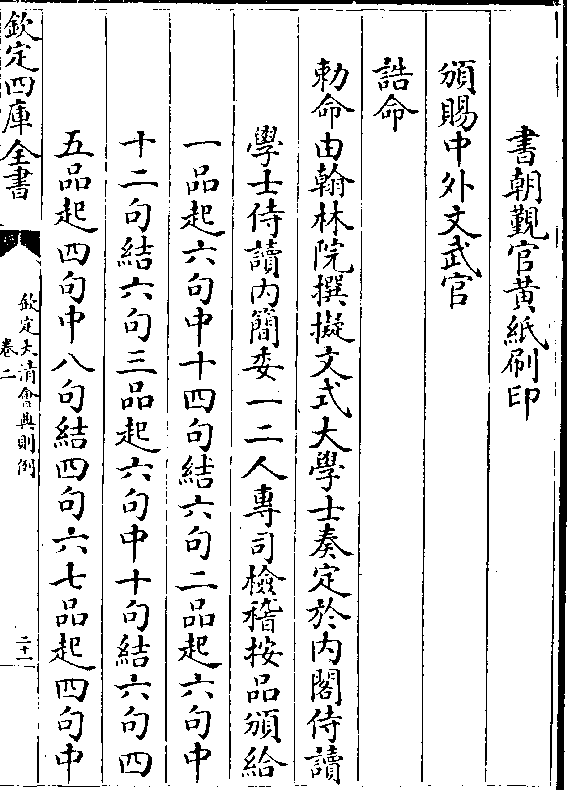 書朝覲官黄紙刷印
頒賜中外文武官
誥命
勅命由翰林院撰擬文式大學士奏定於内閣侍讀
學士侍讀内簡委一二人專司檢稽按品頒給
一品起六句中十四句結六句二品起六句中
十二句結六句三品起六句中十句結六句四
五品起四句中八句結四句六七品起四句中
欽定四庫全書
欽定大清會典則例
卷二
二十一